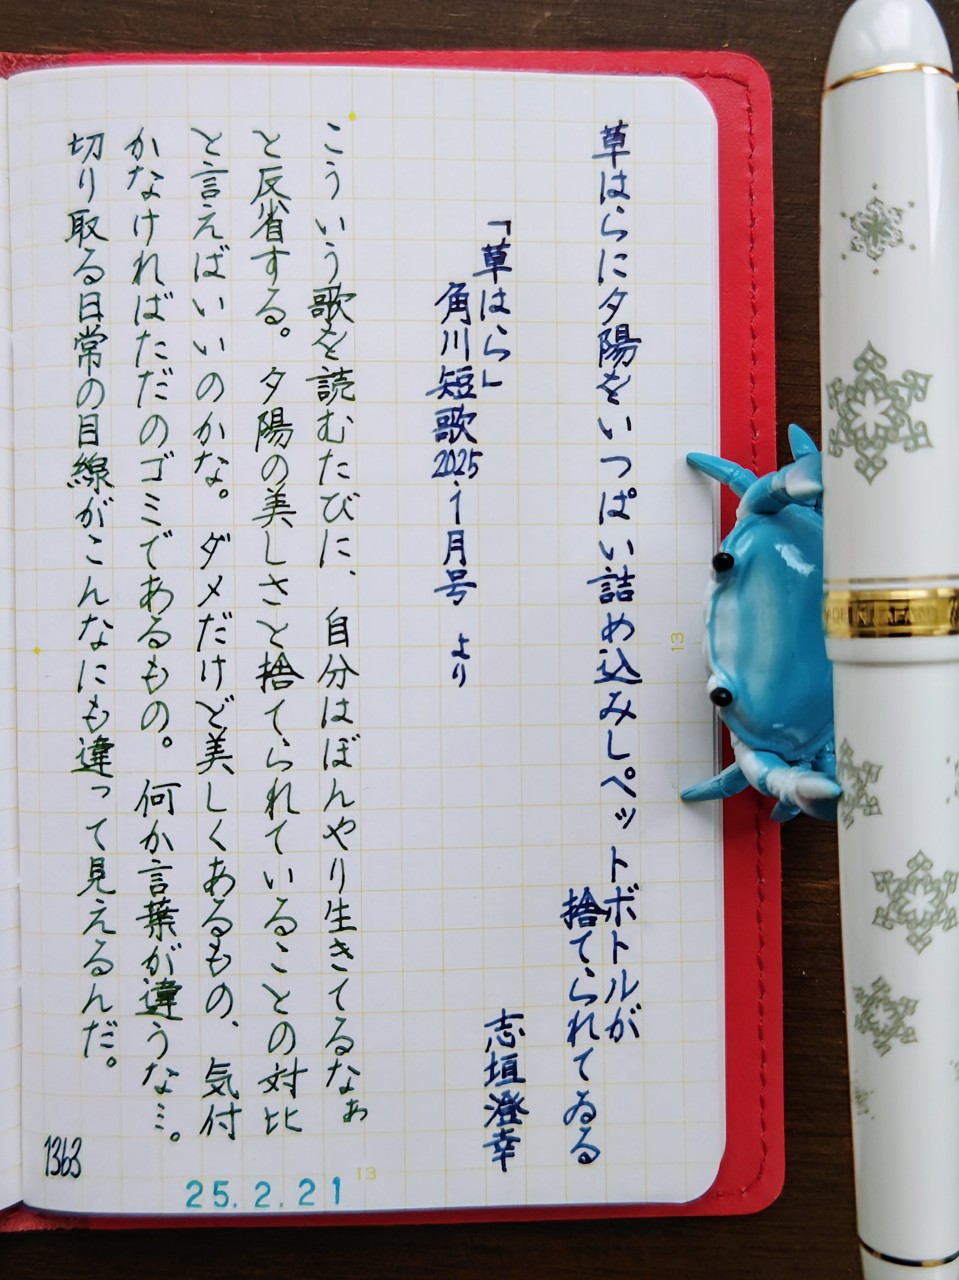 草はらに夕陽をいっぱい詰め込みしペットボトルが
捨てられてゐる
志垣澄幸
「草はら」
角川短歌2025.1月号 より
こういう歌を読むたびに、自分はぼんやり生きてるなぁ
と反省する。夕陽の美しさと捨てられていることの対比
と言えばいいのかな。ダメだけど美しくあるもの、気付
かなければただのゴミであるもの。何か言葉が違うな…。
切り取る日常の目線がこんなにも違って見えるんだ。
1363
25.2.21
13
13